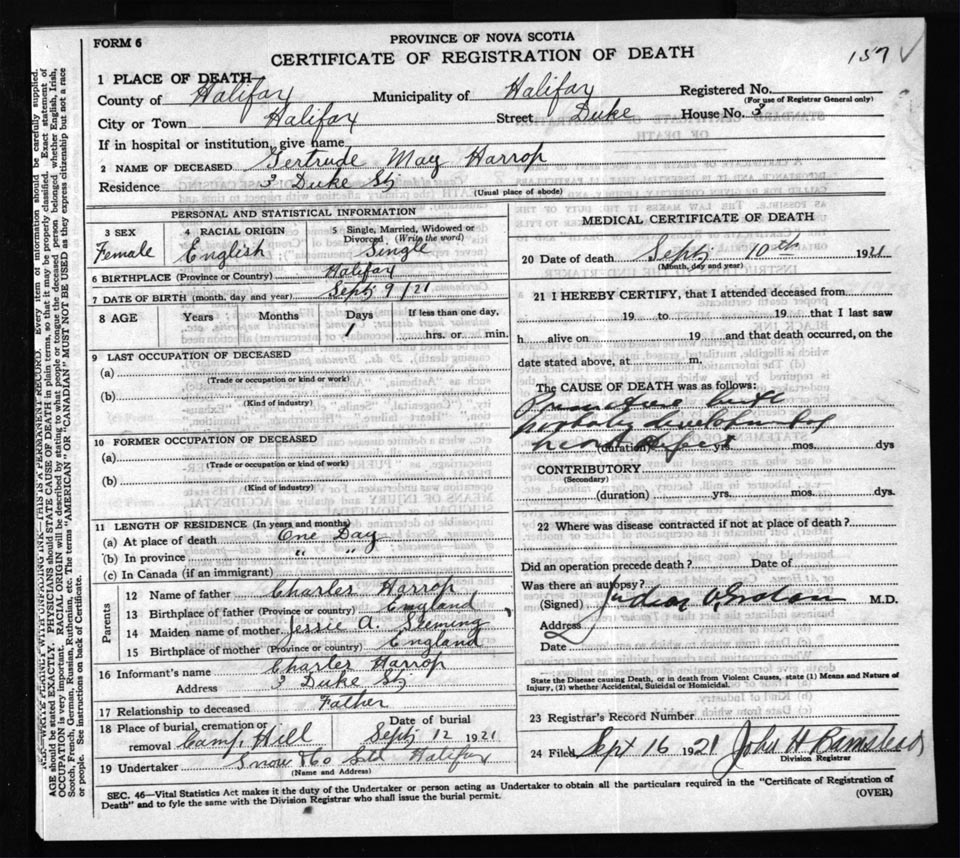 FORM 6
PROVINCE OF NOVA SCOTIA
CERTIFICATE OF REGISTRATION OF DEATH
157 ✓
1 PLACE OF DEATH
County of Halifax Municipality of Halifax Registered No.
(For use of Registrar General only)
City or Town Halifax Street Duke House No. 3
If in hospital or institution, give name
2 NAME OF DECEASED Gertrude May Harrop
Residence 3 Duke St;
(Usual place of abode)
PERSONAL AND STATISTICAL INFORMATION
3 SEX 4 RACIAL ORIGIN 5 Single, Married, Widowed or Divorced, (Write the word)
Female English Single
6 BIRTHPLACE (Province or Country) Halifax
7 DATE OF BIRTH (month, day and year) Sept; 9/21
8 AGE Years Months Days If less than one day,
1 hrs. or min.
9 LAST OCCUPATION OF DECEASED
(a)
(Trade or occupation or kind or work)
(b)
(Kind of industry)
10 FORMER OCCUPATION OF DECEASED
(a)
(Trade or occupation or kind or work)
(b)
(Kind of industry)
11 LENGTH OF RESIDENCE (In years and months)
(a) At place of death One Day
(b) In province " "
(c) In Canada (if an immigrant)
Parents
12 Name of father Charles Harrop
13 Birthplace of father (Province or country) England
14 Maiden name of mother Jessie A.
15 Birthplace of mother (Province or country) England
16 Informant's name Charles Harrop
Address 3 Duke St;
17 Relationship to deceased Father
18 Place of burial, cremation or removal Camp Hill Date of burial Sept; 12 1921
19 Undertaker Snow & Co Ltd Halifax
(Name and Address)
MEDICAL CERTIFICATE OF DEATH
20 Date of death Sept; 10th 1921
(Month, day and year)
21 I HEREBY CERTIFY, that I attended deceased from
19 to 19 that I last saw
h alive on 19 and that death occurred, on the
date stated above, at m.
The CAUSE OF DEATH was as follows:
Premature birth
developed
heart
(duration) yrs. mos. dys
CONTRIBUTORY
(Secondary)
(duration) yrs. mos. dys.
22 Where was disease contracted if not at place of death?
Did an operation precede death? Date of
Was there an autopsy?
(Signed) M.D.
Address
Date
State the Disease causing Death, or in death from Violent Causes, state (1) Means and Nature of
Injury, (2) whether Accidental, Suicidal or Homicidal.
23 Registrar's Record Number
24 Filed Sept 16 1921 John H Barnstead
Division Registrar
SEC. 46—Vital Statistics Act makes it the duty of the Undertaker or person acting as Undertaker to obtain all the particulars required in the "Certificate of Registration of
Death" and to fyle the same with the Division Registrar who shall issue the burial permit. (OVER)
WRITE PLAINLY WITH UNFADING INK—THIS IS A PERMANENT RECORD. Every item of information should be carefully supplied.
AGE should be stated EXACTLY. PHYSICIANS should STATE CAUSE OF DEATH in plain terms, so that it may be properly classified. Exact statement of
OCCUPATION is very important. RACIAL ORIGIN will be described by stating to what people or tongue the deceased person belonged whether English, Irish,
Scotch, French, German, Russian, Ruthenian, etc. The terms "AMERICAN" OR "CANADIAN" MUST NOT BE USED as they express citizenship but not a race
or people. See instructions on back of Certificate.